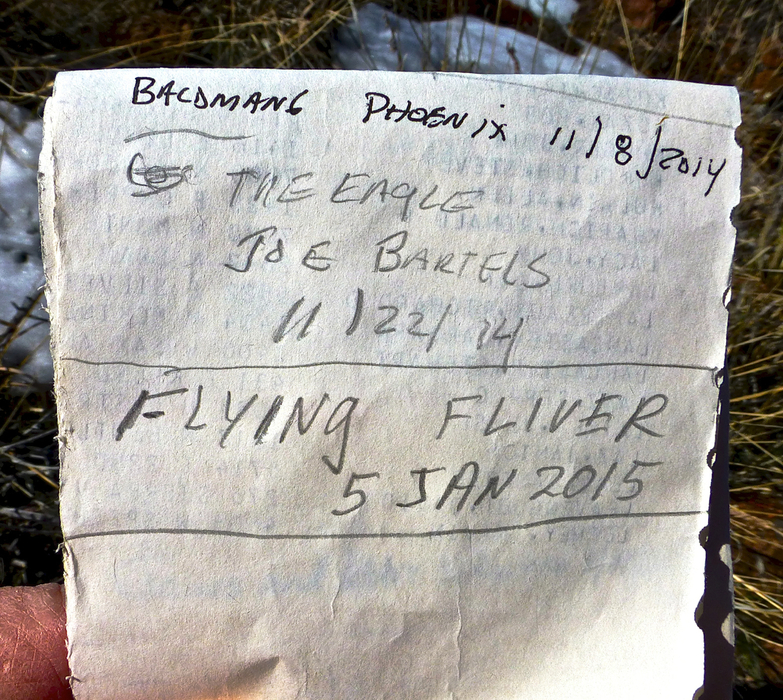 BALDMAN6 PHOENIX 11/8/2014
THE EAGLE
JOE BARTELS
11/22/14
FLYING FLIVER
5 JAN 2015